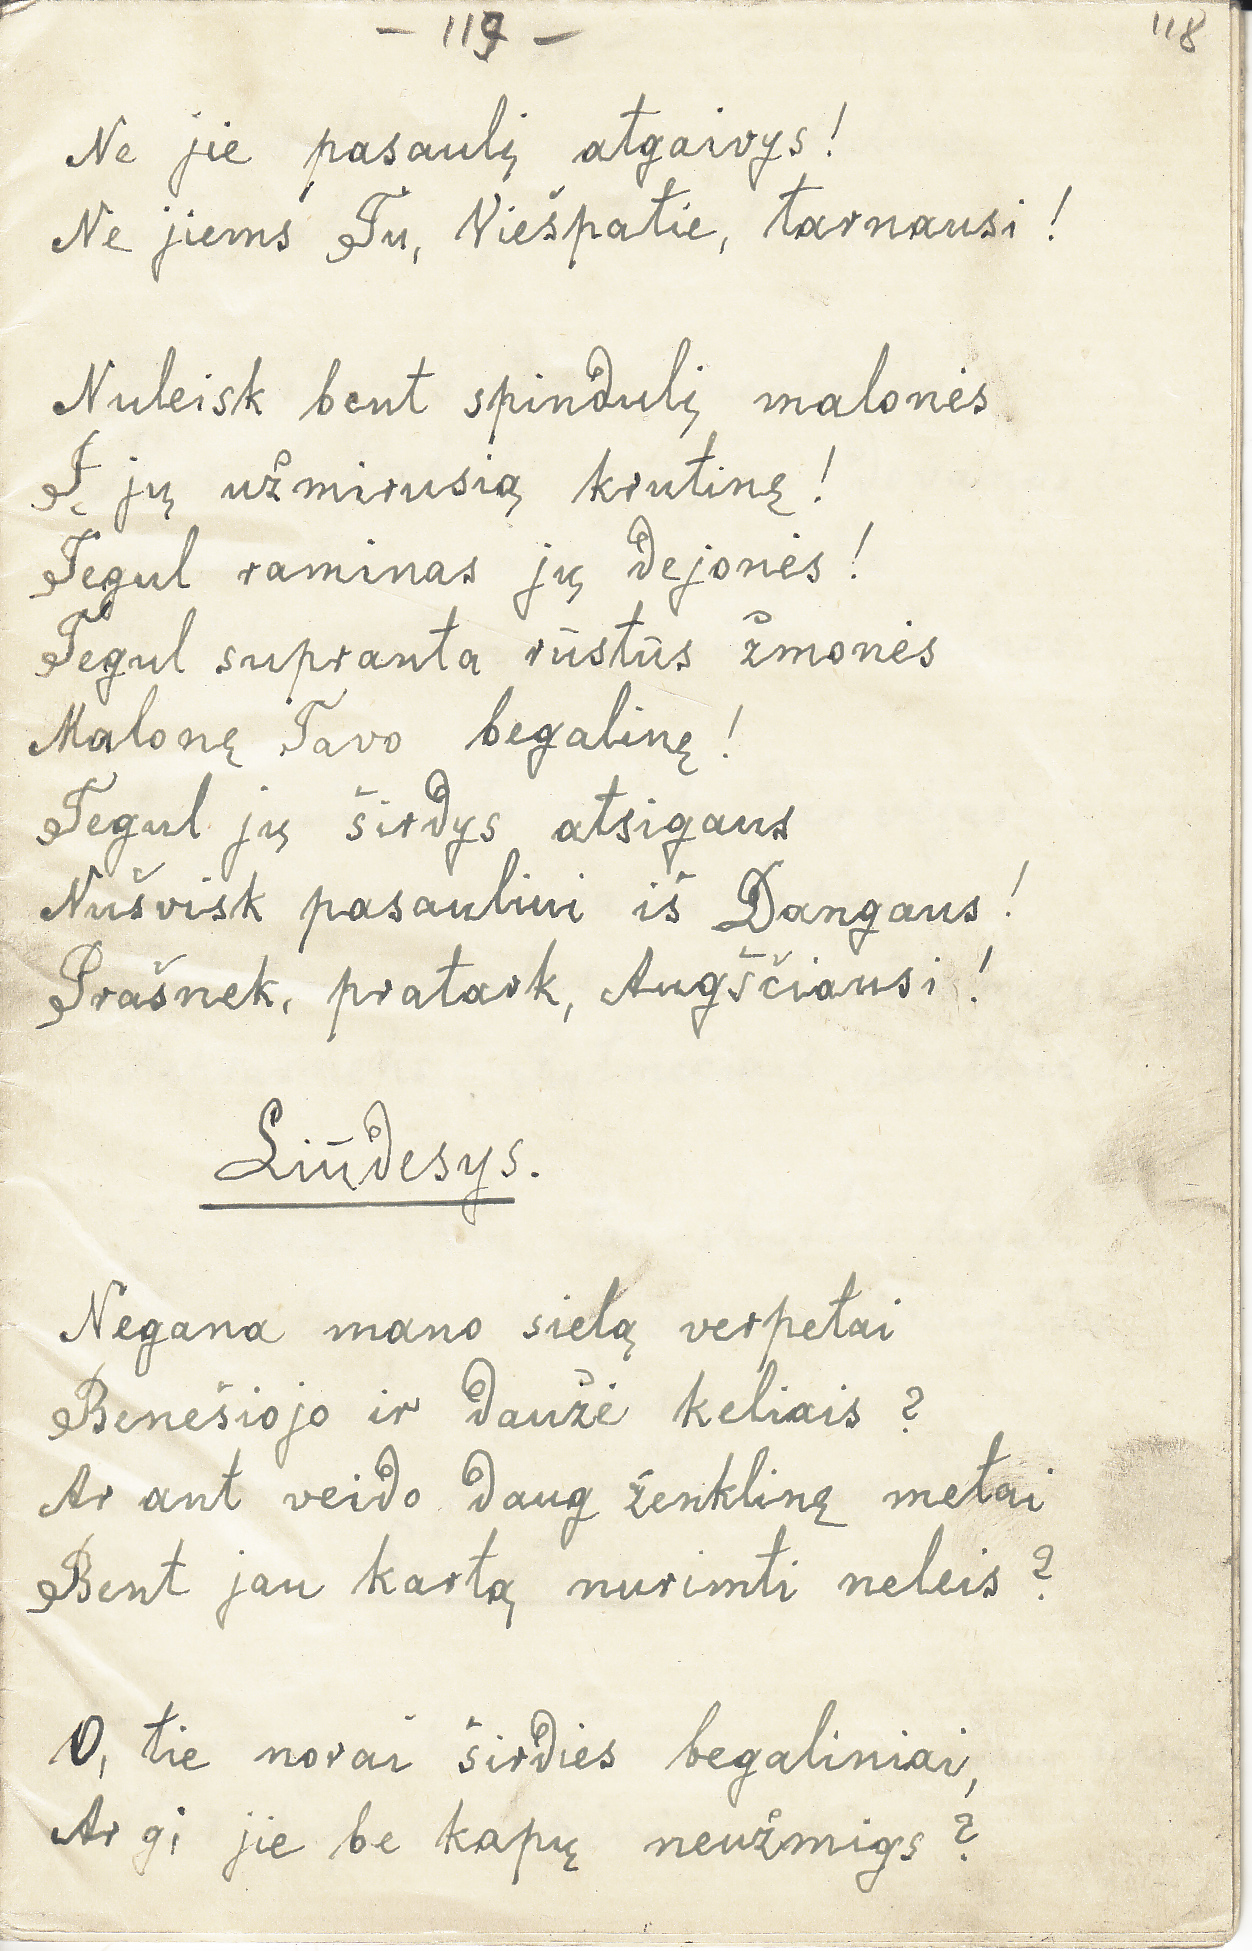 - 119 -
118
Ne jie pasaulį atgaivys!
Ne jiems Tu, Viešpatie, tarnausi!
Nuleisk bent spindulį malonės
Į jų užmirusią krutinę!
Tegul raminas jų dejonės!
Tegul supranta rūstūs žmonės
Malonę Tavo begalinę!
Tegul jų širdys atsigaus
Nušvisk pasauliui iš Dangaus!
Prašnek, pratark, Augščiausi!
Liūdesys.
Negana mano sielą verpetai
Benešiojo ir daužė keliais?
Ar ant veido daug ženklinę metai
Bent jau kartą nurimti neleis?
O, tie norai širdies begaliniai,
Ar gi jie be kapų neužmigs?